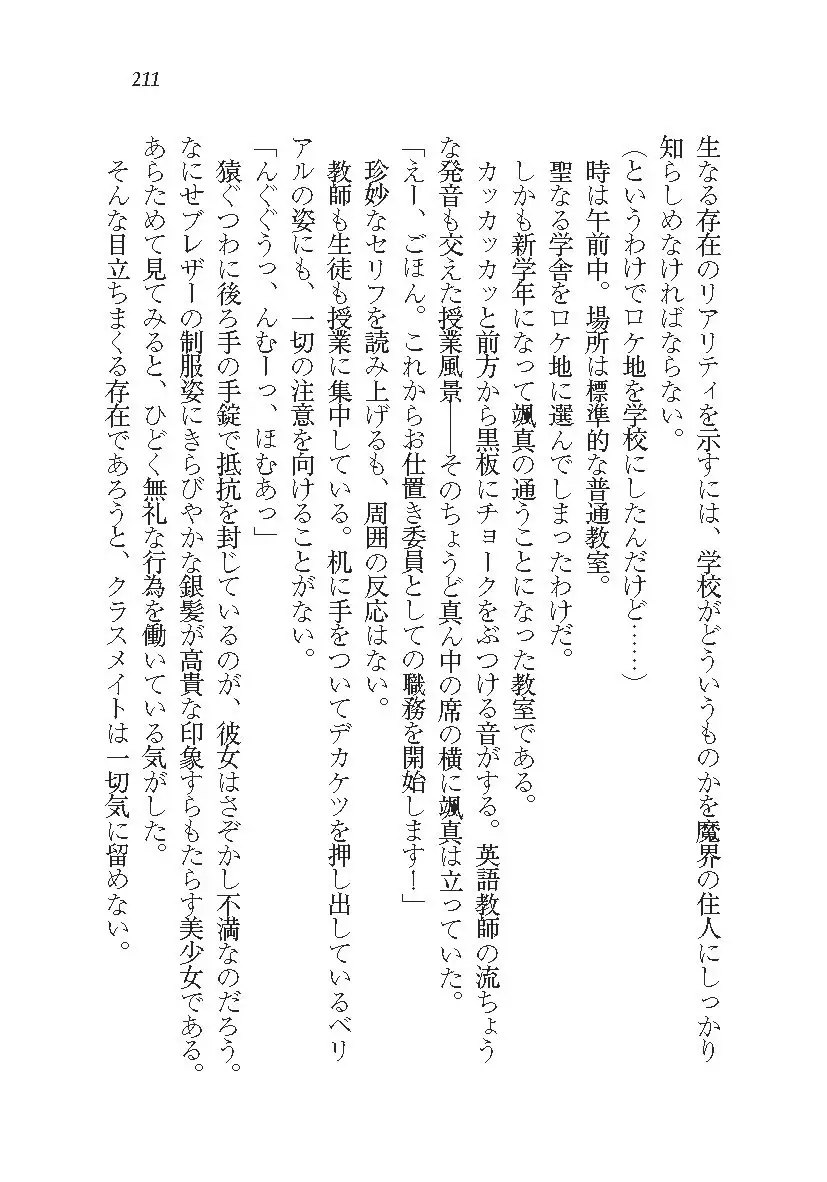 211
生なる存在のリアリティを示すには、学校がどういうものかを魔界の住人にしっかり
知らしめなければならない。
（というわけでロケ地を学校にしたんだけど……）
時は午前中。場所は標準的な普通教室。
聖なる学舎をロケ地に選んでしまったわけだ。
しかも新学年になって颯真の通うことになった教室である。
カッカッカッと前方から黒板にチョークをぶつける音がする。英語教師の流ちょう
な発音も交えた授業風景――そのちょうど真ん中の席の横に颯真は立っていた。
「えー、ごほん。これからお仕置き委員としての職務を開始します！」
珍妙なセリフを読み上げるも、周囲の反応はない。
教師も生徒も授業に集中している。机に手をついてデカケツを押し出しているベリ
アルの姿にも、一切の注意を向けることがない。
「んぐぐうっ、んむーっ、ほむあっ」
猿ぐつわに後ろ手の手錠で抵抗を封じているのが、彼女はさぞかし不満なのだろう。
なにせブレザーの制服姿にきらびやかな銀髪が高貴な印象すらもたらす美少女である。
あらためて見てみると、ひどく無礼な行為を働いている気がした。
そんな目立ちまくる存在であろうと、クラスメイトは一切気に留めない。